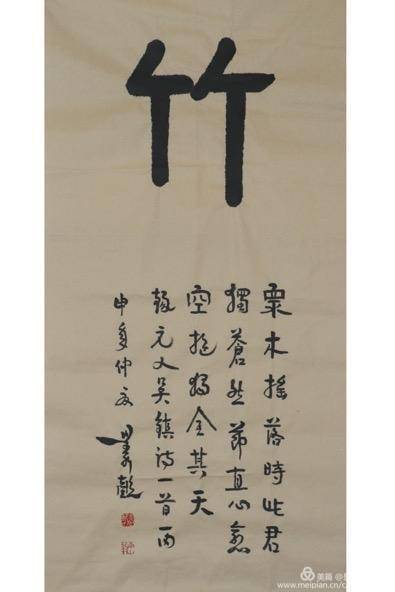 竹
眾木搖落時此君
獨蒼然節直心愈
空抱獨全其天
錄元人吳鎮詩一首丙
申夏仲
美篇
www.meipian.cn/c